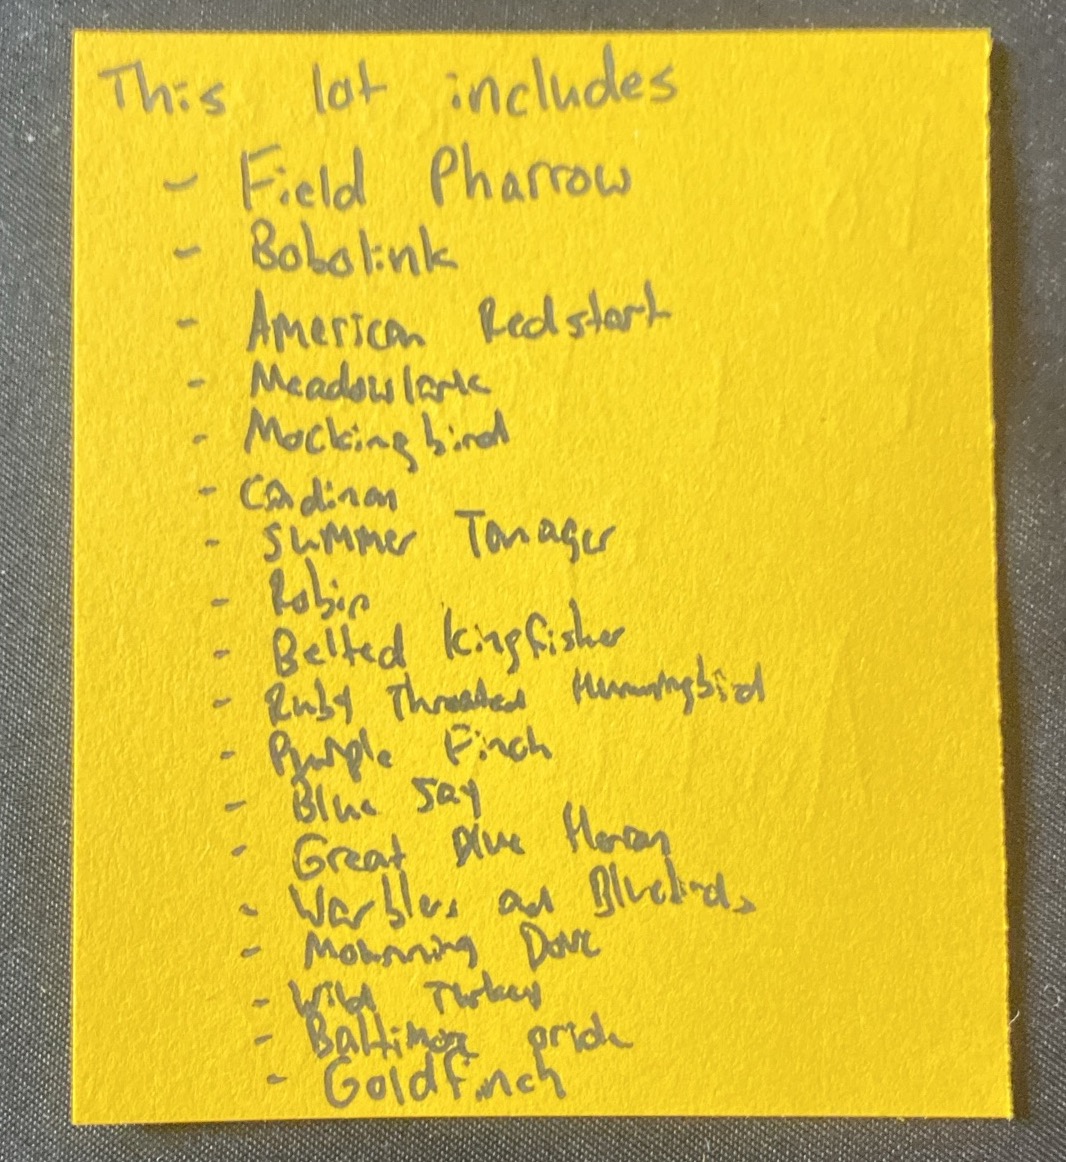 This lot includes
- Field Pharrow
- Bobolink
- American Redstart
- Meadowlark
- Mockingbird
- Cadinan
- Summer Tanager
- Robin
- Belted Kingfisher
- Ruby Throated Hummingbird
- Purple Finch
- Blue Jay
- Great Blue Heron
- Warblers and Bluebirds
- Mourning Dove
- Wild Turkey
- Baltimore
- Goldfinch